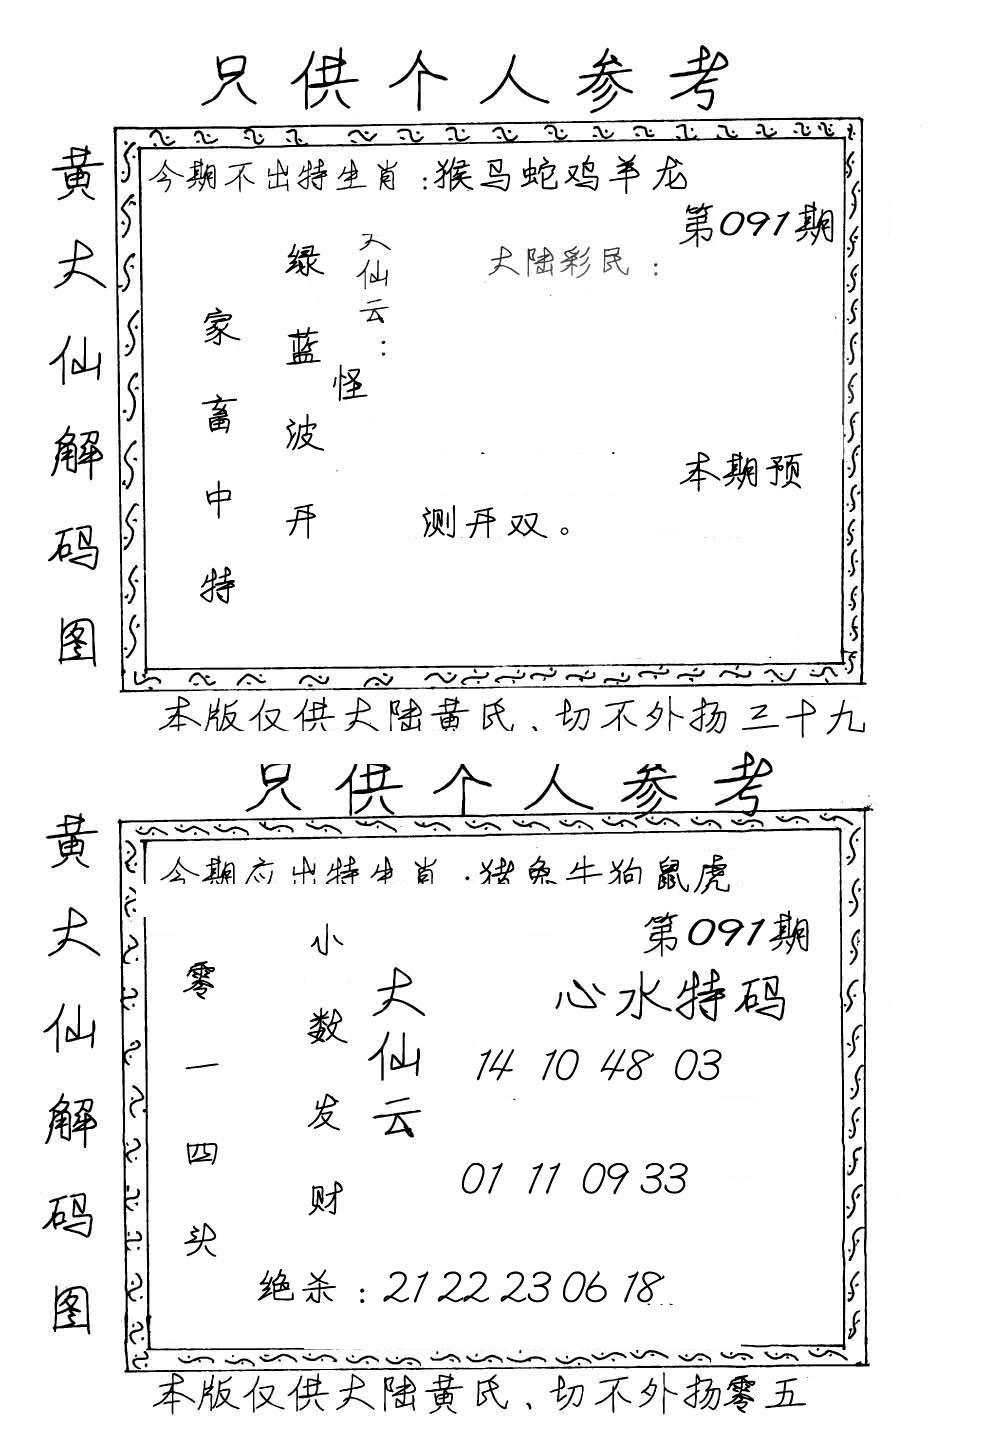 只供个人参考
黄大仙解码图
今期不出特生肖:猴马蛇鸡羊龙
第091期
大陆彩民:
大仙云:
怪
绿蓝波开
家畜中特
本期预
测开双。
本版仅供大陆黄氏、切不外扬三十九
只供个人参考
黄大仙解码图
今期应出特生肖:猪兔牛狗鼠虎
第091期
心水特码
大仙云
小数发财
零一四头
14 10 48 03
01 11 09 33
绝杀:21 22 23 06 18
本版仅供大陆黄氏、切不外扬零五